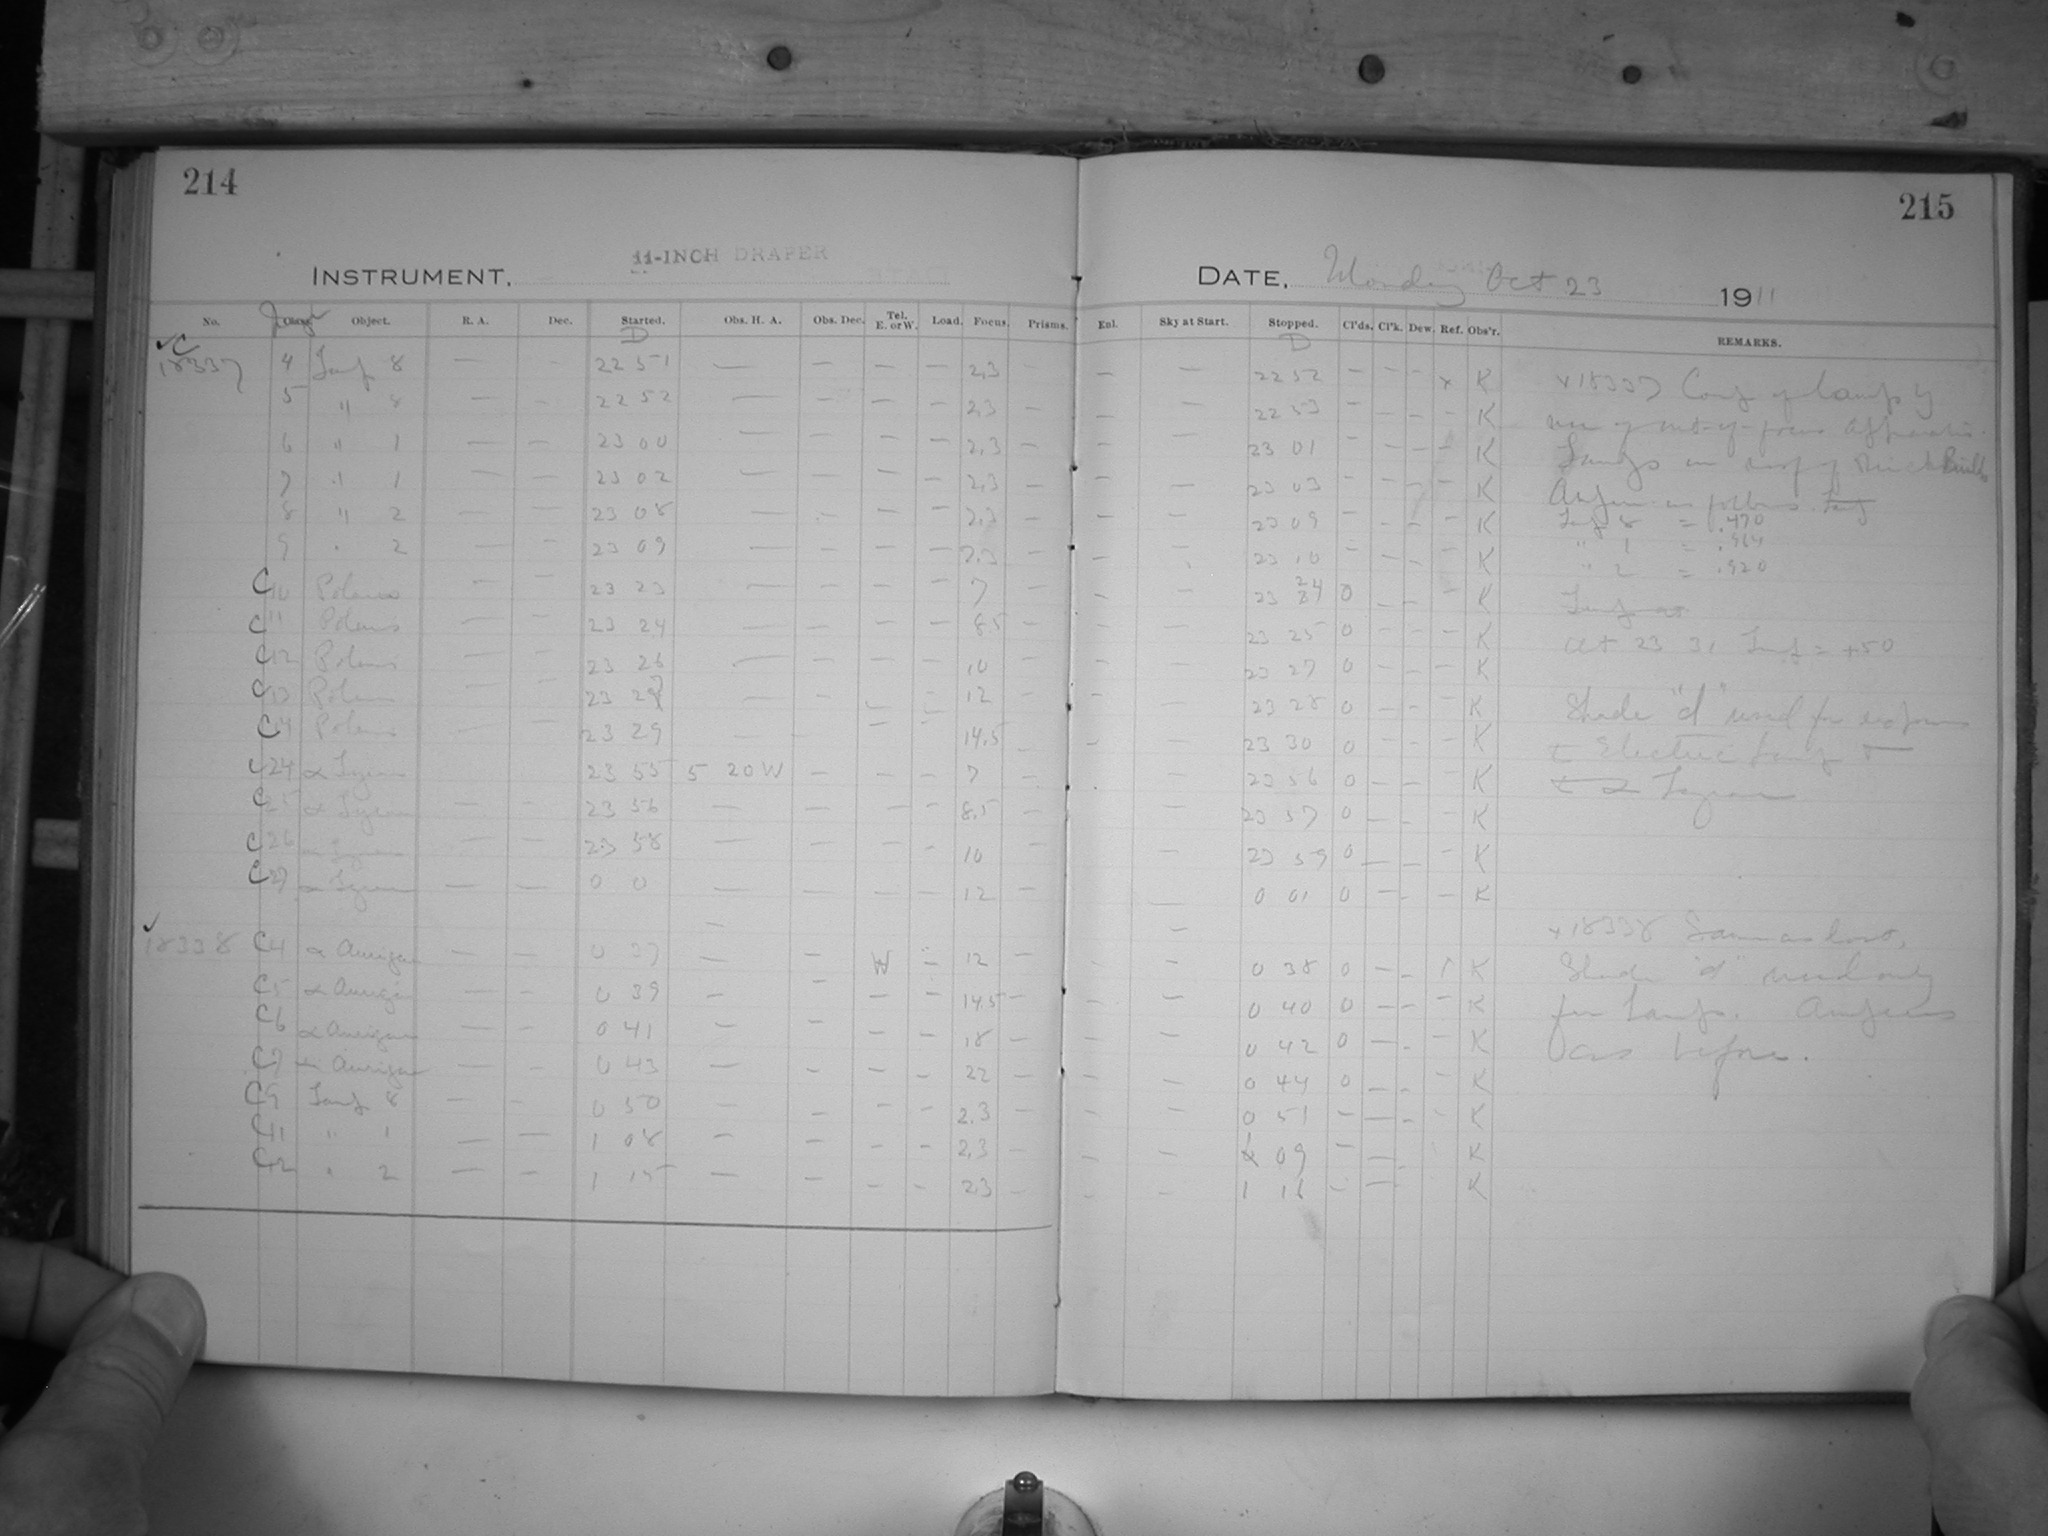 214
215
11-INCH DRAPER
INSTRUMENT.
DATE, Monday Oct 23 1911
No. Object. R. A. Dec. Started. Obs. H. A. Obs. Dec. Tel. E. or W. Load. Focus. Prisms. Enl. Sky at Start. Stopped. Cl'ds. Cl'k. Dew. Ref. Obs'r. REMARKS.
D D
C
18337 4 Lamp 8 — — 22 51 — — — — 2.3 — — — 22 52 — — — x K
5 " 8 — — 22 52 — — — — 2.3 — — — 22 53 — — — — K
6 " 1 — — 23 00 — — — — 2.3 — — — 23 01 — — — — K
7 " 1 — — 23 02 — — — 2.3 — — — 23 03 — — — — K
8 " 2 — — 23 08 — — — — 2.3 — — — 23 09 — — — — K
9 " 2 — — 23 09 — — — — 2.3 — — 23 10 — — — — K
C 10 Polaris — — 23 23 — — — — 7 — — — 23 24 0 — — — K
C 11 Polaris — — 23 24 — — — — 8.5 — — — 23 25 0 — — — K
C 12 Polaris — — 23 26 — — — — 10 — — — 23 27 0 — — — K
C 13 Polaris — — 23 27 — — — — 12 — — 23 28 0 — — — K
C 14 Polaris — — 23 29 — — — — 14.5 — — — 23 30 0 — — — K
C 24 α Lyrae 23 55 5 20 W — — — 7 — — — 23 56 0 — — — K
C 25 α Lyrae — — 23 56 — — — — 8.5 — — — 23 57 0 — — — K
C 26 α Lyrae — — 23 58 — — — — 10 — — 23 59 0 — — — K
C 27 α Lyrae — — 0 0 — — — — 12 — — 0 01 0 — — — K
18338 C 4 α Aurigae — — 0 37 — — W — 12 — — — 0 38 0 — — K
C 5 α Aurigae — — 0 39 — — — — 14.5 — — — 0 40 0 — — — K
C 6 α Aurigae — — 0 41 — — — — 18 — — — 0 42 0 — — — K
C 7 α Aurigae — — 0 43 — — — — 22 — — — 0 44 0 — — — K
C 9 Lamp 8 — — 0 50 — — — — 2.3 — — — 0 51 — — — — K
C 11 " 1 — — 1 08 — — — — 2.3 — — — 09 — — K
C 12 " 2 — — 1 15 — — — — 2.3 — — — 1 16 — — K
x 18337 Comp of lamps by
use of out-of-focus apparatus.
Lamps on roof of Brick Build.
Amperes as follows. Lamp
Lamp 8 = .470
" 1 = .464
" 2 = .920
At 23 31 Temp = +50
Shade "d" used for
Electric Lamp
α Lyrae
x 18338 Same as last.
Shade "d" used only
for Lamps. Amperes
as before.